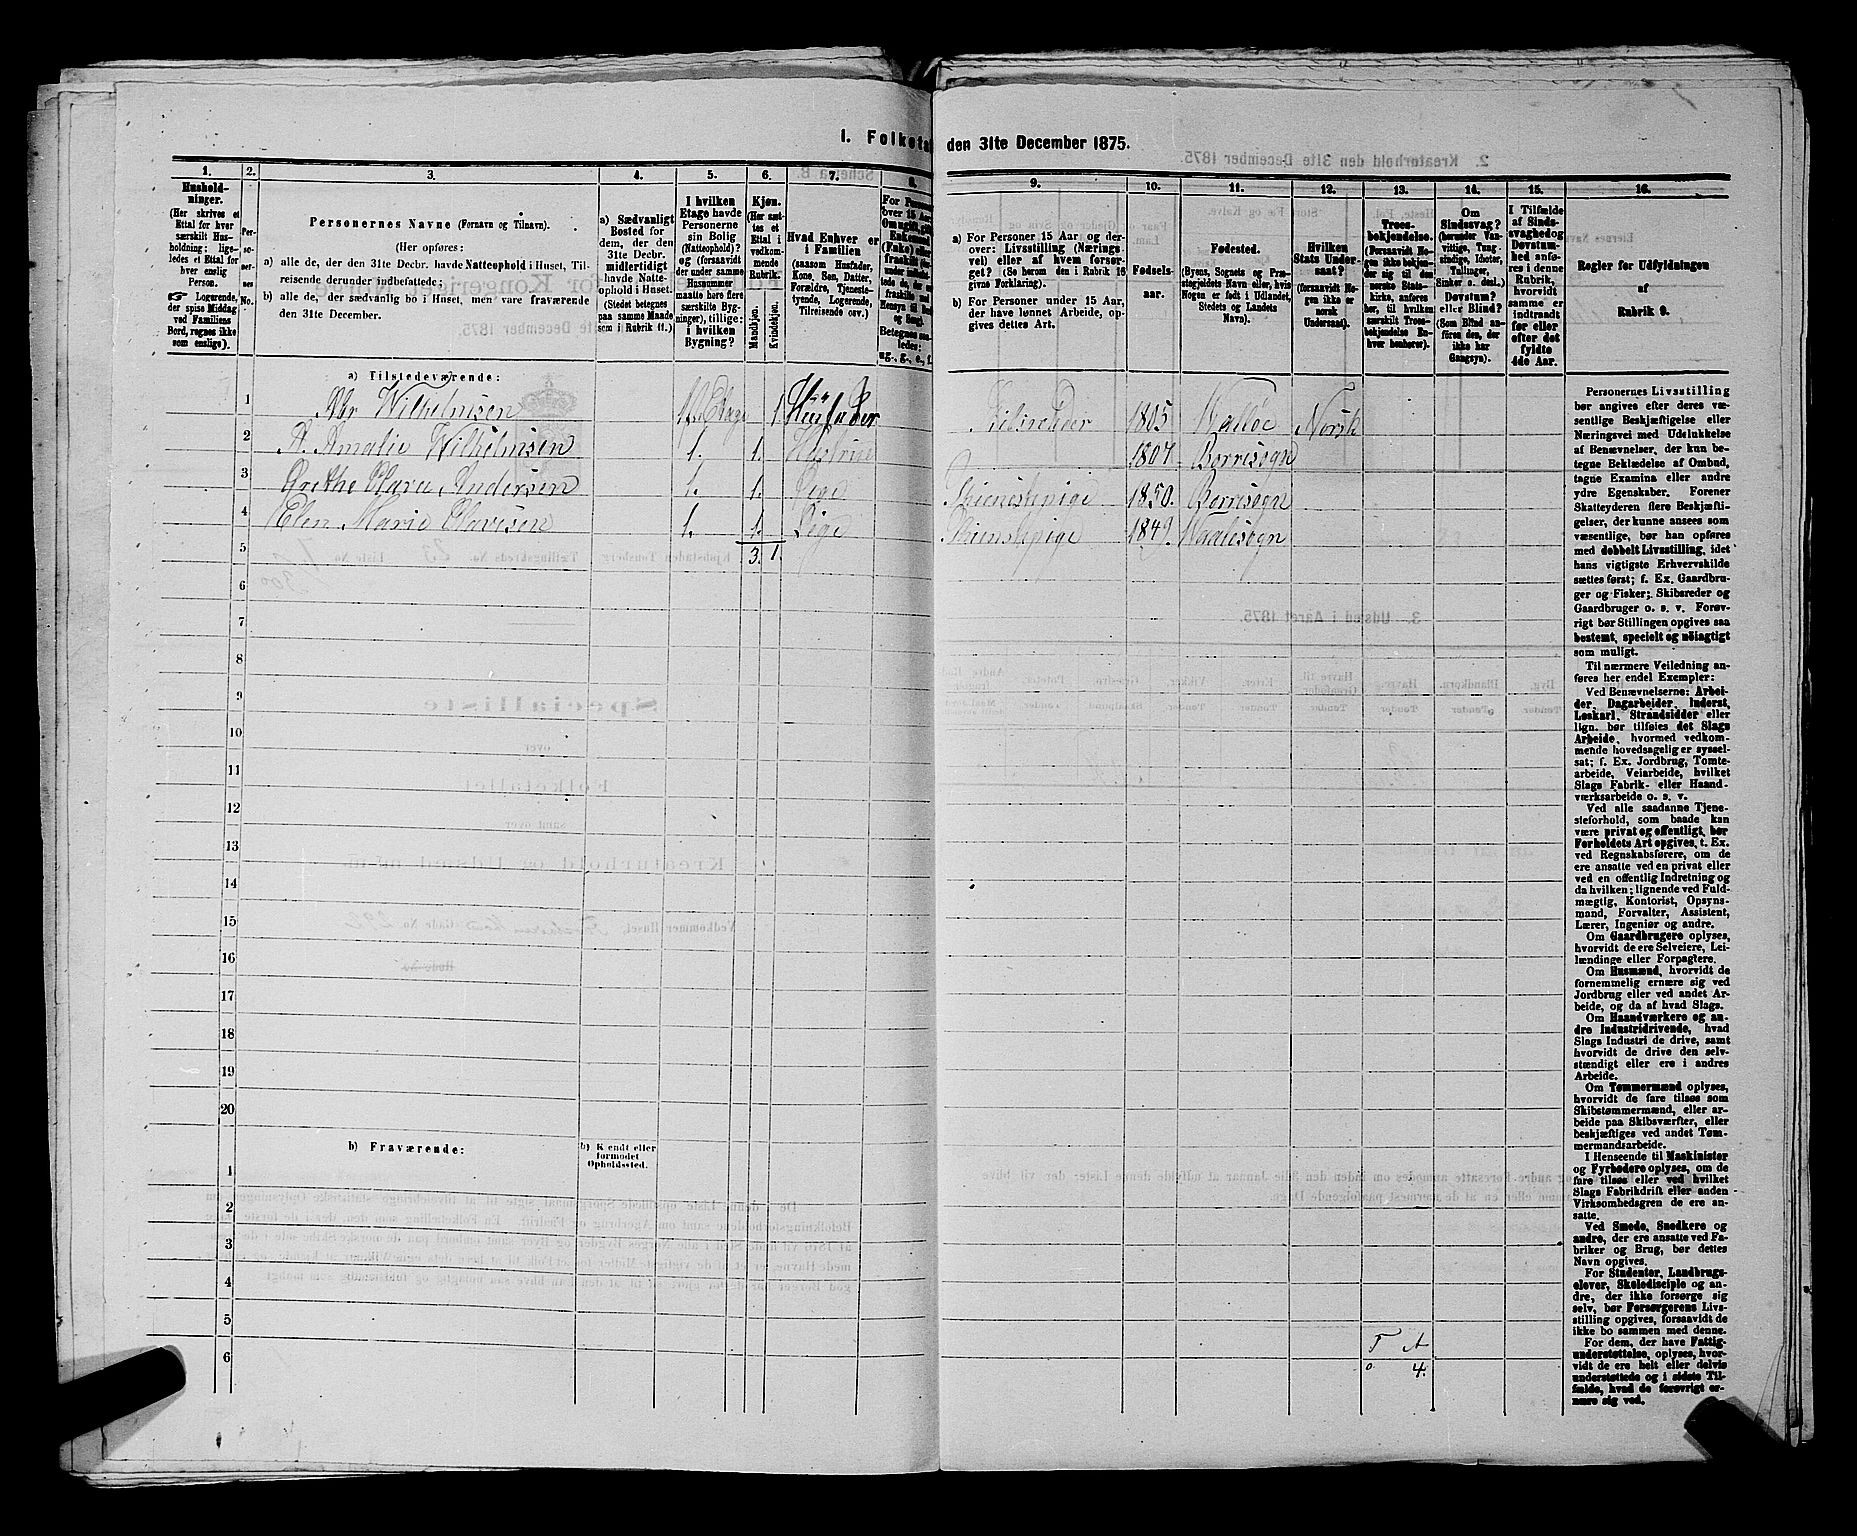 1. Folketal den 31te December 1875.
1. 2. 3. 4. 5. 6. 7. 8. 9. 10. 11. 12. 13. 14. 15. 16.
Hushold-
ninger.
(Her skrives et
Ettal for hver
særskilt Hus-
holdning; lige-
ledes et Ettal for
hver enslig
Person.
Logerende,
der spise Middag
ved Familiens
Bord, regnes ikke
som enslige).
Per-
so-
ner-
nes
No.
Personernes Navne (Fornavn og Tilnavn).
(Her opføres:
a) alle de, der den 31te Decbr. havde Natteophold i Huset, Til-
reisende derunder indbefattede;
b) alle de, der sædvanlig bo i Huset, men vare fraværende
den 31te December.
a) Sædvanligt
Bosted for
dem, der den
31te Decbr.
midlertidigt
havde Natte-
ophold i Huset.
(Stedet betegnes
paa samme Maade
som i Rubrik 11.)
I hvilken
Etage havde
Personerne
sin Bolig
(Natteophold)?
og (forsaavidt
der under samme
Husnummer
maatte høre flere
særskilte Byg-
ninger), tillige:
i hvilken
Bygning?
Kjøn.
(Her sæt-
tes et
Ettal i
vedkom-
mende
Rubrik.
Mandkjøn.
Kvindekjøn.
Hvad Enhver er
i Familien
(saasom Husfader,
Kone, Søn, Datter,
Forældre, Tjeneste-
tyende, Logerende,
Tilreisende osv.)
a) For Personer 15 Aar og der-
over: Livsstilling (Nærings-
vei) eller af hvem forsør-
get? (Se herom den i Rubrik 16
givne Forklaring).
b) For Personer under 15 Aar,
der have lønnet Arbeide, op-
gives dettes Art.
Fødsels-
aar.
Fødested.
(Byens, Sognets og Præ-
stegjeldets Navn eller, hvis
Nogen er født i Udlandet,
Stedets og Landets
Navn).
Hvilken
Stats Under-
saat?
(forsaavidt No-
gen ikke er
norsk
Undersaat).
Troes-
bekjendelse.
(Forsaavidt No-
gen ikke bekjen-
der sig til den
norske Stats-
kirke, anføres
her, til hvilken
særskilt Troes-
bekjendelse En-
hver henhører).
Om
Sindssvag?
(herunder Van-
vittige, Tung-
sindige, Idioter,
Tullinger,
Sinker o. desl.)
Døvstum?
eller Blind?
(Som Blind an-
føres den, der
ikke har
Gangsyn).
I Tilfælde
af Sinds-
svaghed og
Døvstum-
hed anfø-
res i denne
Rubrik,
hvorvidt
samme er
indtraadt
før eller
efter det
fyldte
4de Aar.
Regler for Udfyldningen
af
Rubrik 9.
a) Tilstedeværende:
1 Abr Wilhelmsen 1ste Etage 1 Husfader Skibsreder 1805 Valløe Norsk
2 A. Amalie Wilhelmsen 1. 1. Hustrue 1807 Borresogn
3 Grethe Clara Andersen 1. 1. Pige Thienestepige 1850. Borresogn
4 Elen Marie Olavesen 1. 1. Pige Thienstepige 1849. Waalesogn
5 3. 1.
6
7
8
9
10
11
12
13
14
15
16
17
18
19
20
b) Fraværende:
b) Kjendt eller
formodet
Opholdssted.
1
2
3
4
5
6
T A
0 4.
Personernes Livsstilling
bør angives efter deres væ-
sentlige Beskjæftigelse eller
Næringsvei med Udelukkelse
af Benævnelser, der kun be-
tegne Beklædelse af Ombud,
tagne Examina eller andre
ydre Egenskaber. Forener
Skatteyderen flere Beskjæfti-
gelser, der kunne ansees som
væsentlige, bør han opføres
med dobbelt Livsstilling, idet
hans vigtigste Erhvervskilde
sættes først; f. Ex. Gaardbru-
ger og Fisker; Skibsreder og
Gaardbruger o. s. v. Forøv-
rigt bør Stillingen opgives saa
bestemt, specielt og nöiagtigt
som muligt.
Til nærmere Veiledning an-
føres her endel Exempler:
Ved Benævnelserne: Arbei-
der, Dagarbeider, Inderst,
Løskarl, Strandsidder eller
lign. bør tilføies det Slags
Arbeide, hvormed vedkom-
mende hovedsagelig er syssel-
sat; f. Ex. Jordbrug, Tomte-
arbeide, Veiarbeide, hvilket
Slags Fabrik- eller Haand-
værksarbeide o. s. v.
Ved alle saadanne Tjene-
steforhold, som baade kan
være privat og offentligt, bør
Forholdets Art opgives, t. Ex.
ved Regnskabsførere, om de
ere ansatte ved en privat eller
ved en offentlig Indretning og
da hvilken; lignende ved Fuld-
mægtig, Kontorist, Opsyns-
mand, Forvalter, Assistent,
Lærer, Ingeniør og andre.
Om Gaardbrugere oplyses,
hvorvidt de ere Selveiere, Lei-
lændinge eller Forpagtere.
Om Husmænd, hvorvidt de
fornemmelig ernære sig ved
Jordbrug eller ved andet Ar-
beide, og da af hvad Slags.
Om Haandværkere og an-
dre Industridrivende, hvad
Slags Industri de drive, samt
hvorvidt de drive den selv-
stændigt eller ere i andres
Arbeide.
Om Tømmermænd oplyses,
hvorvidt de fare tilsøs som
Skibstømmermænd, eller ar-
beide paa Skibsværfter, eller
beskjæftiges ved andet Tøm-
mermandsarbeide.
I Henseende til Maskinister
og Fyrbødere oplyses, om de
fare tilsøs eller ved hvilket
Slags Fabrikdrift eller anden
Virksomhedsgren de ere an-
satte.
Ved Smede, Snedkere og
andre, der ere ansatte ved Fa-
briker og Brug, bør dettes
Navn opgives.
For Studenter, Landbrugs-
elever, Skoledisciple og an-
dre, der ikke forsørge sig
selv, bør Forsørgerens Livs-
stilling opgives, forsaavidt de
ikke bo sammen med denne.
For dem, der have Fattig-
understøttelse, oplyses, hvor-
vidt de ere helt eller delvis
understøttede og i sidste Til-
fælde, hvad de forøvrigt er-
nære sig ved.